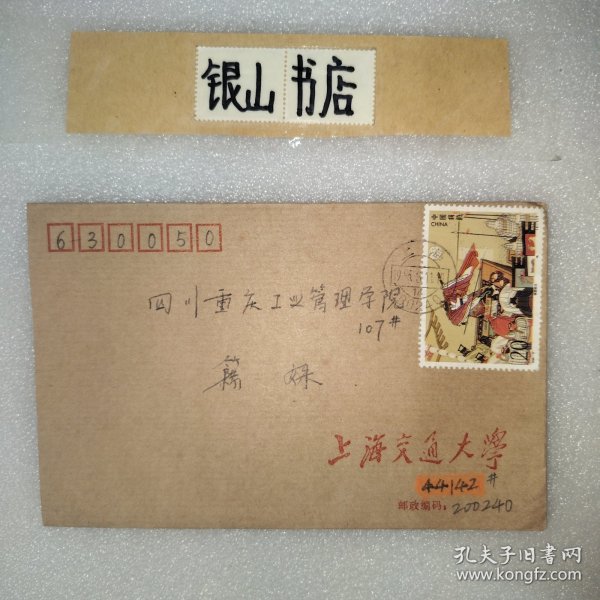 银山 书店
630050
中国邮政
CHINA
20
四川重庆工业管理学院
107#
上海交通大学
44142#
邮政编码：200240
孔夫子旧书网
www.kongfz.com